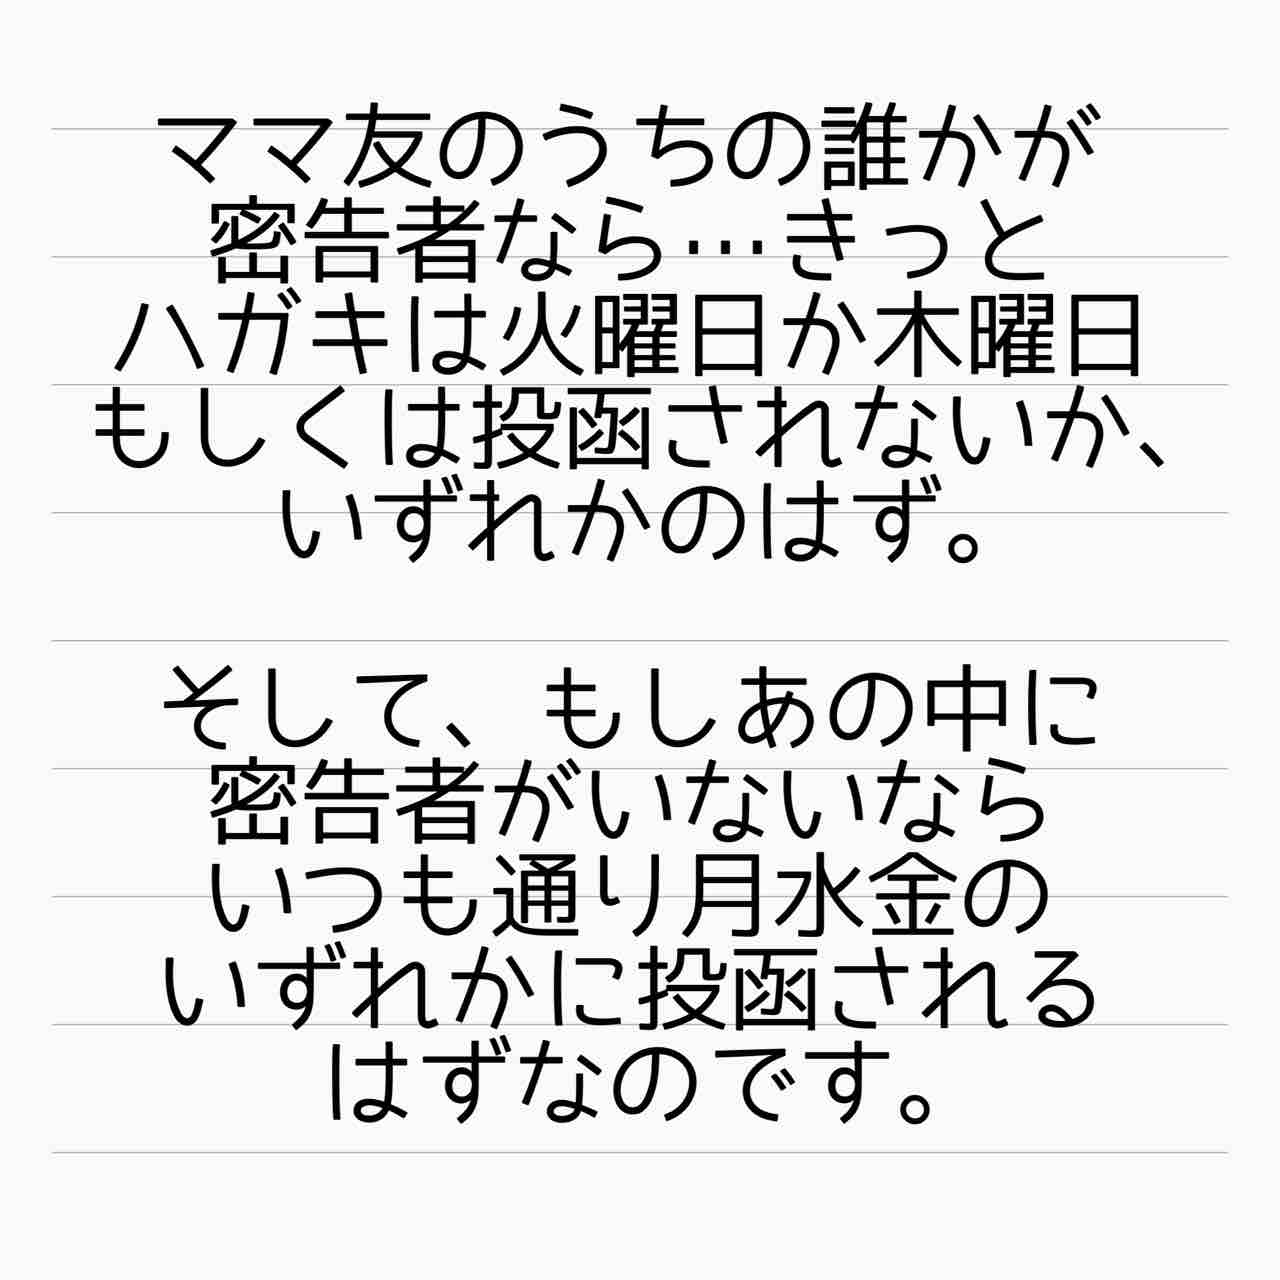 ママ友のうちの誰かが
密告者なら…きっと
ハガキは火曜日か木曜日
もしくは投函されないか、
いずれかのはず。
そして、もしあの中に
密告者がいないなら
いつも通り月水金の
いずれかに投函される
はずなのです。